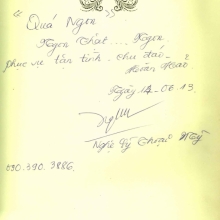 "Quá Ngon"
Ngon thật .... Ngon
phục vụ tận tình. chu đáo.
Hoàn Hảo
Ngày 14.06.13
Nghệ Sỹ Thoại Mỹ
090.390.9886.